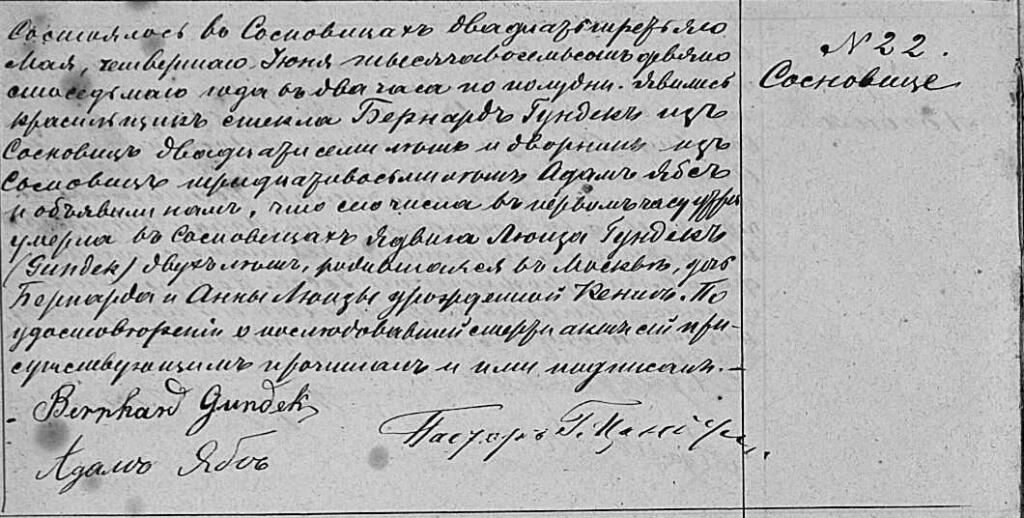 Состоялось въ Сосновицахъ двадцать третьяго
Мая, четвертаго Іюня тысяча восемьсотъ девяно
стоседьмаго года въ два часа по полудни. Явились
красильщикъ стекла Бернардъ Гундекъ изъ
Сосновицъ двадцати семи лѣтъ и дворникъ изъ
Сосновицъ тридцативосьми лѣтъ Адамъ Ябсъ
и объявили намъ, что сего числа въ первомъ часу утра
умерла въ Сосновицахъ Ядвига Люиза Гундекъ
(Gundek) двухъ лѣтъ, родившаяся въ Москвѣ, дочь
Бернарда и Анны Люизы урожденной Кенигъ. По
удостовѣреніи о послѣдовавшей смерти актъ сей при-
сутствующимъ прочитанъ и ими подписанъ. –
Bernhard Gundek
Адамъ Ябсъ
Пасторъ Г.
N 22.
Сосновице